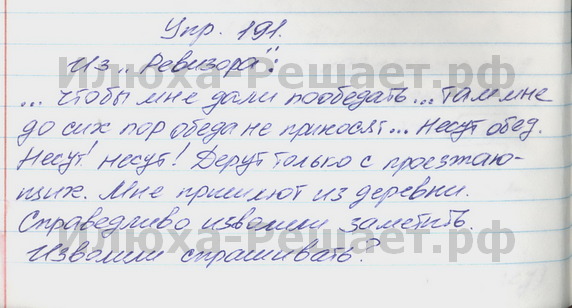 Упр. 191.
Из „Ревизора":
... чтобы мне дали пообедать... там мне
до сих пор обеда не приносят... Несут обед.
Несут! несут! Дерут только с проезжаю-
щих. Мне пришлют из деревни.
Справедливо изволили заметить.
Изволили спрашивать?
Илюха-Решает.рф
Илюха-Решает.рф